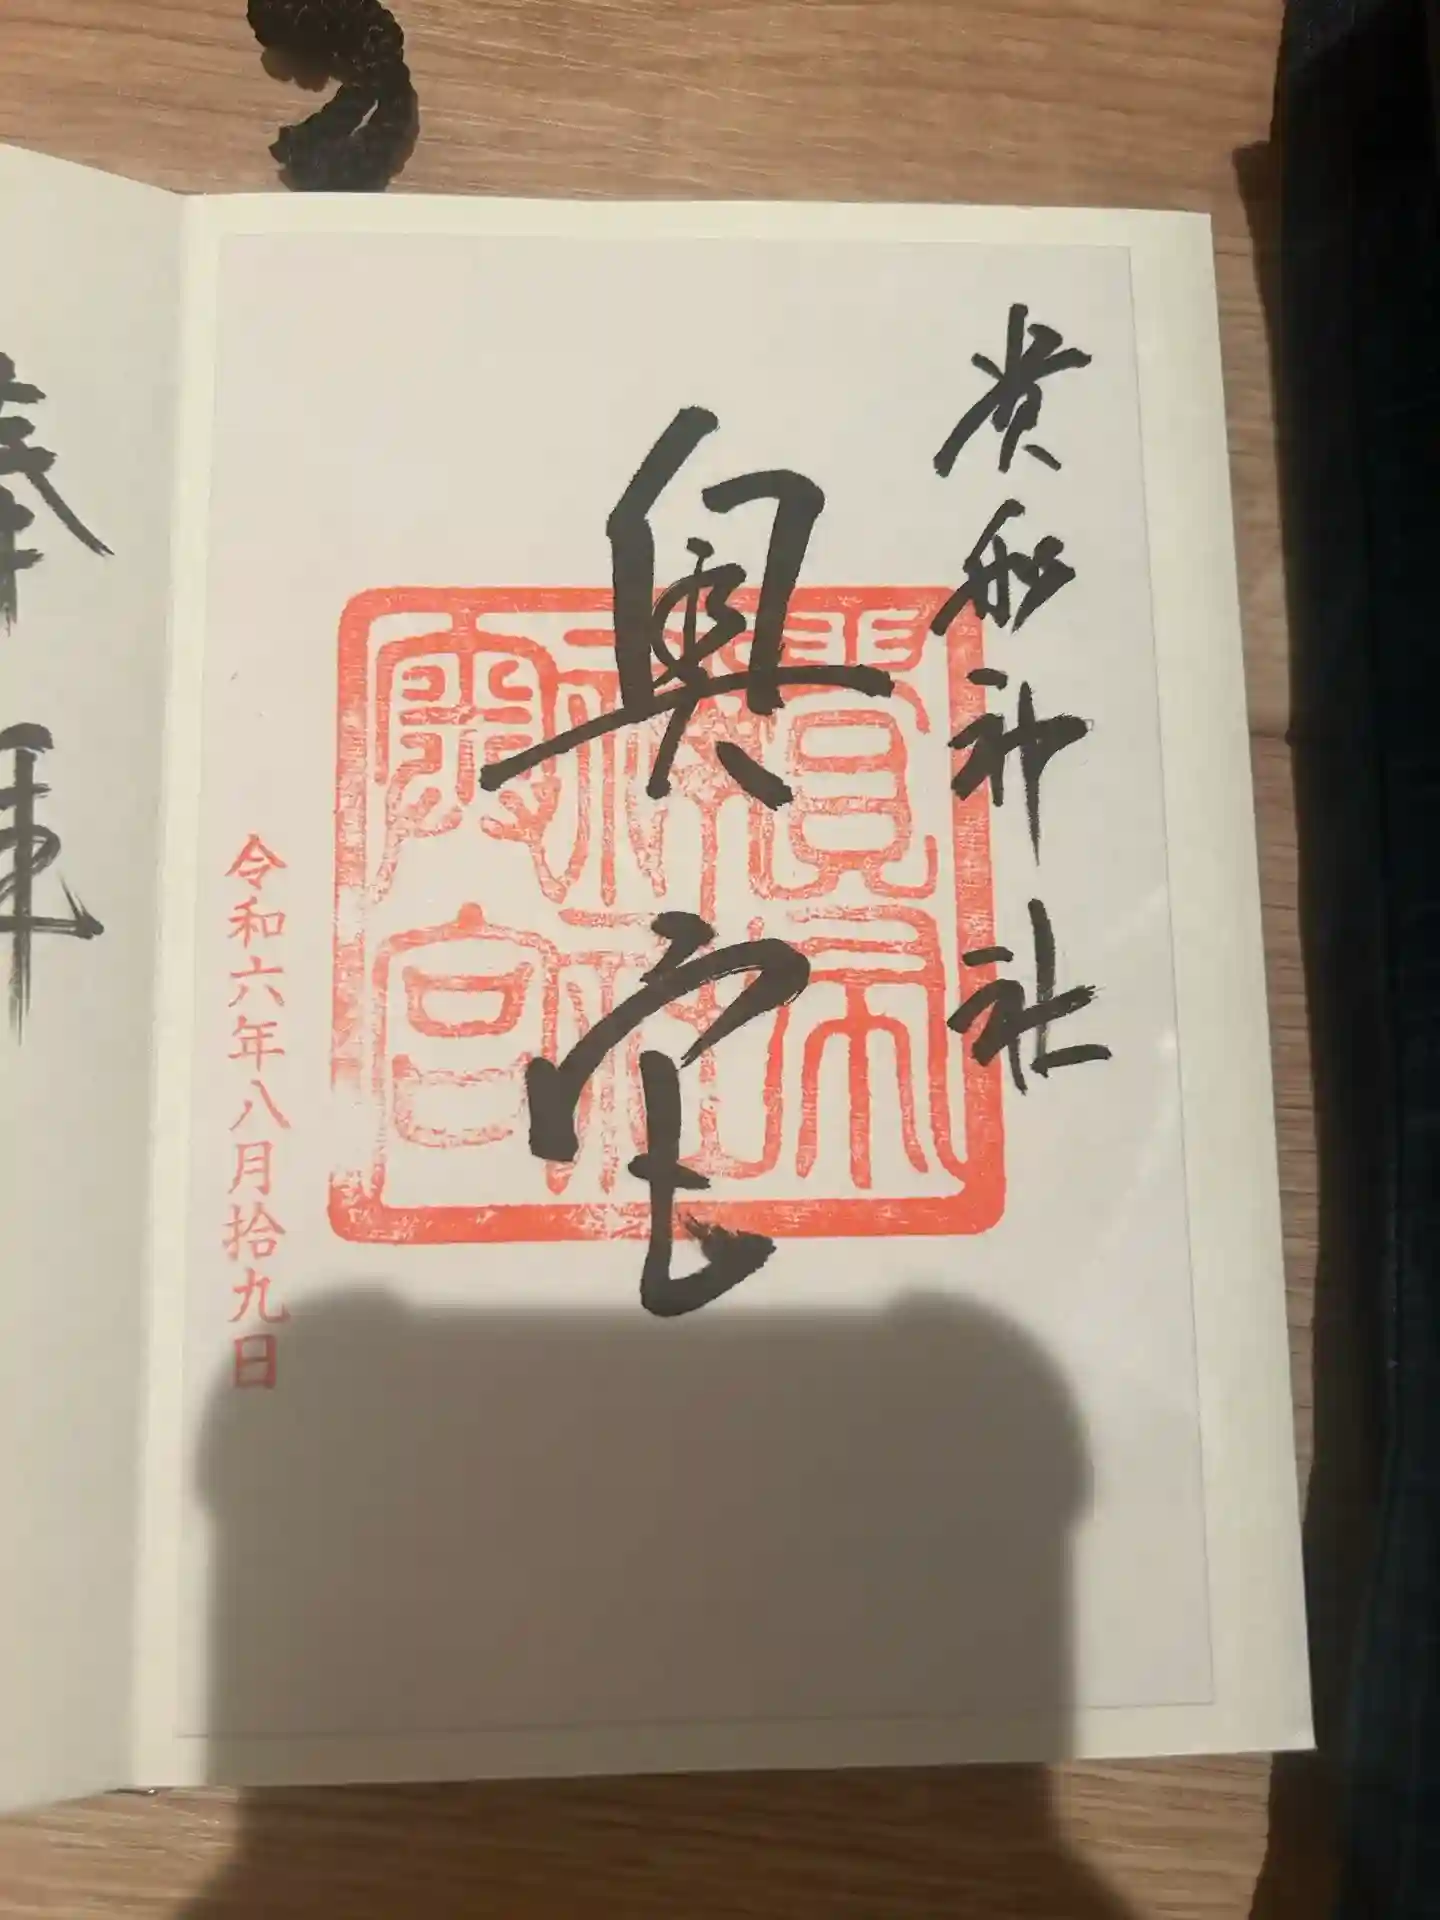 貴船神社
奥宮
貴布
奥宮
令和六年八月拾九日
奉拝